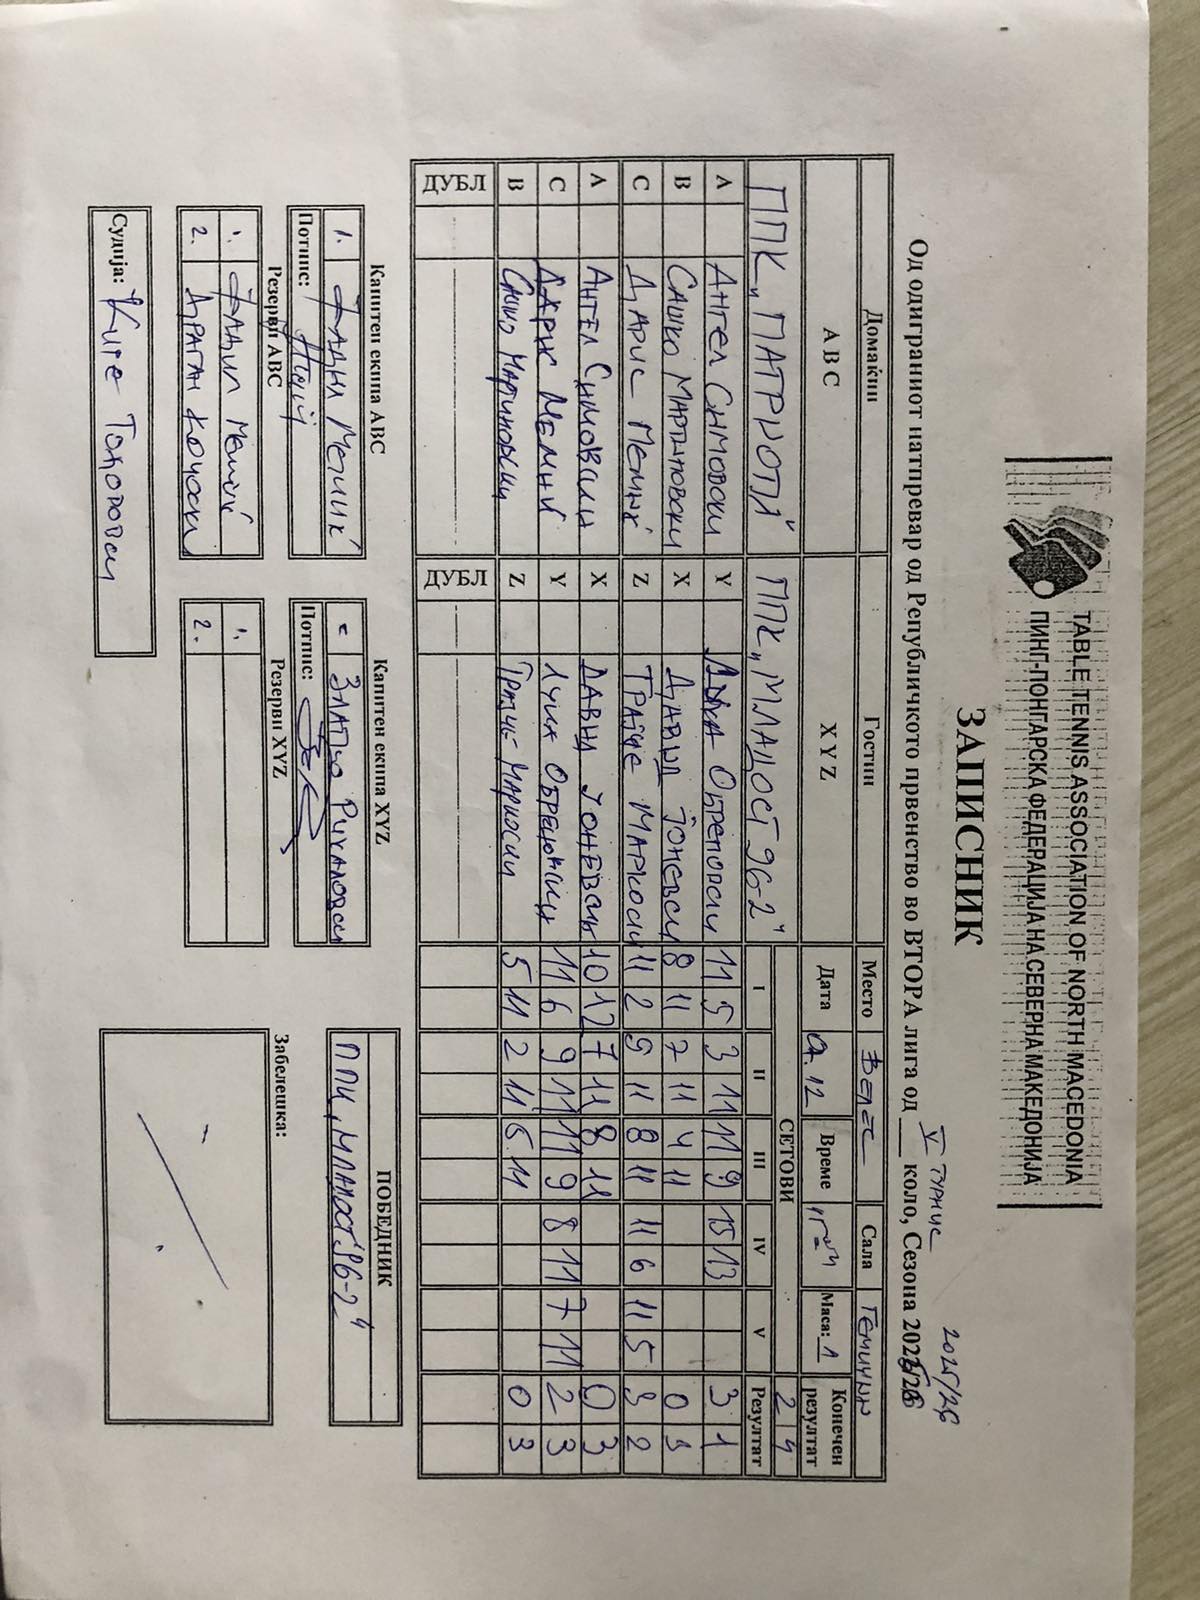 TABLE TENNIS ASSOCIATION OF NORTH MACEDONIA
ПИНГ-ПОНГАРСКА ФЕДЕРАЦИЈА НА СЕВЕРНА МАКЕДОНИЈА
ЗАПИСНИК
V ТУРНИР 2025/26
Од одиграниот натпревар од Републичкото првенство во ВТОРА лига од ___ коло, Сезона
Домаќин Гостин Место Велес Сала Гемиџии
A B C X Y Z Дата 07.12 Време Маса: 1 Конечен резултат
ППК „ПАТРИОТИ" ППК „МЛАДОСТ 96-2" СЕТОВИ 2 4
I II III IV V Резултат
A АНГЕЛ СИМОВСКИ Y 11 5 3 11 11 9 15 13 3 1
B САШКО МАРТИНОВСКИ X ДАВИД ЈОНЕВСКИ 8 11 7 11 4 11 0 3
C ДАРИС МЕМИЌ Z ТРАЈЧЕ МАРКОСКИ 11 2 9 11 8 11 11 6 11 5 3 2
A АНГЕЛ СИМОВСКИ X ДАВИД ЈОНЕВСКИ 10 12 7 11 8 11 0 3
C ДАРИС МЕМИЌ Y ЛУКА 11 6 9 11 11 9 8 11 7 11 2 3
B САШКО МАРТИНОВСКИ Z ТРАЈЧЕ МАРКОСКИ 5 11 2 11 5 11 0 3
ДУБЛ ДУБЛ
Капитен екипа ABC Капитен екипа XYZ
1. ЗЛАТКО
Потпис: Потпис:
Резерви ABC Резерви XYZ
1. ФАДИЛ МЕМИЌ 1.
2. ДРАГАН КОЧОСКИ 2.
Судија: Кире Тодоровски
ПОБЕДНИК
ППК „МЛАДОСТ 96-2"
Забелешка: